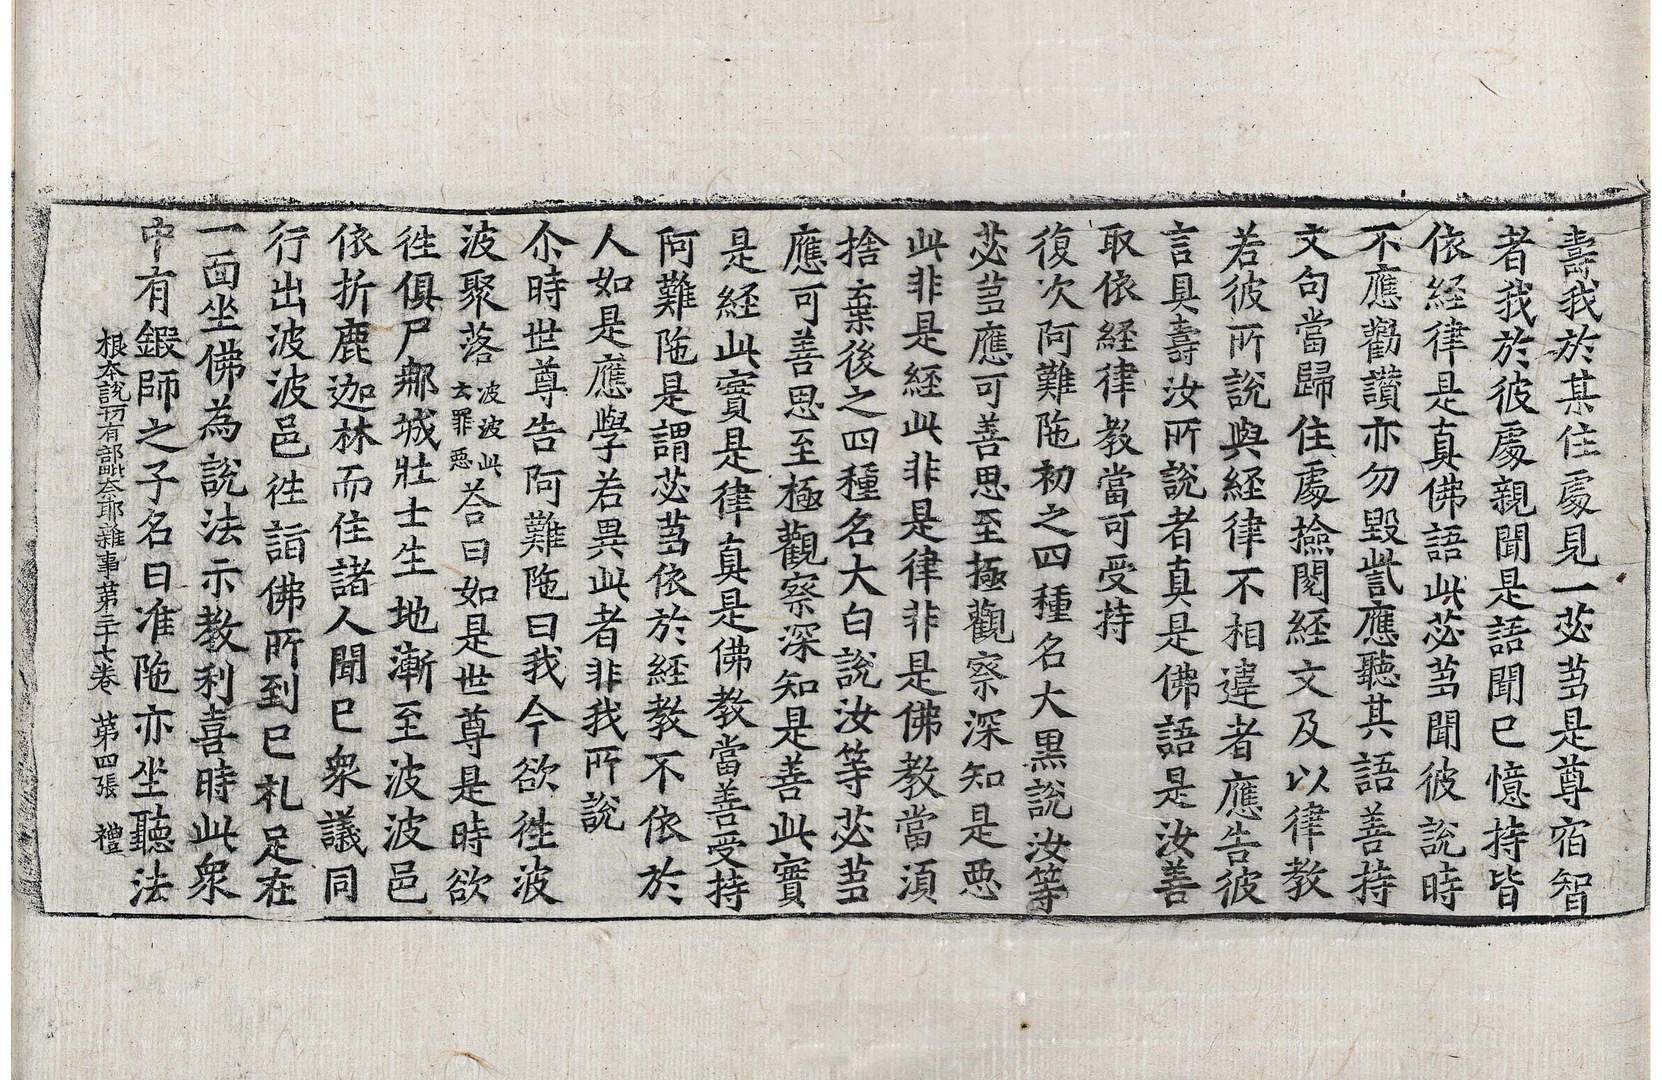 壽我於某住處見一苾芻是尊宿智
者我於彼處親聞是語聞已憶持皆
依経律是真佛語此苾芻聞彼說時
不應勸讚亦勿毀訾應聽其語善持
文句當歸住處撿閱経文及以律教
若彼所說與経律不相違者應告彼
言具壽汝所說者真是佛語是汝善
取依経律教當可受持
復次阿難陁初之四種名大黒說汝等
苾芻應可善思至極觀察深知是惡
此非是経此非是律非是佛教當須
捨棄後之四種名大白說汝等苾芻
應可善思至極觀察深知是善此實
是経此實是律真是佛教當善受持
阿難陁是謂苾芻依於経教不依於
人如是應學若異此者非我所說
尒時世尊告阿難陁曰我今欲徃波
波聚落波波此云罪惡荅曰如是世尊是時欲
徃俱尸那城壯士生地漸至波波邑
依折鹿迦林而住諸人聞已衆議同
行出波波邑徃詣佛所到已礼足在
一面坐佛為說法示教利喜時此衆
中有鍛師之子名曰准陁亦坐聽法
根本說一切有部毗奈耶雜事第三十七卷 第四張 禮